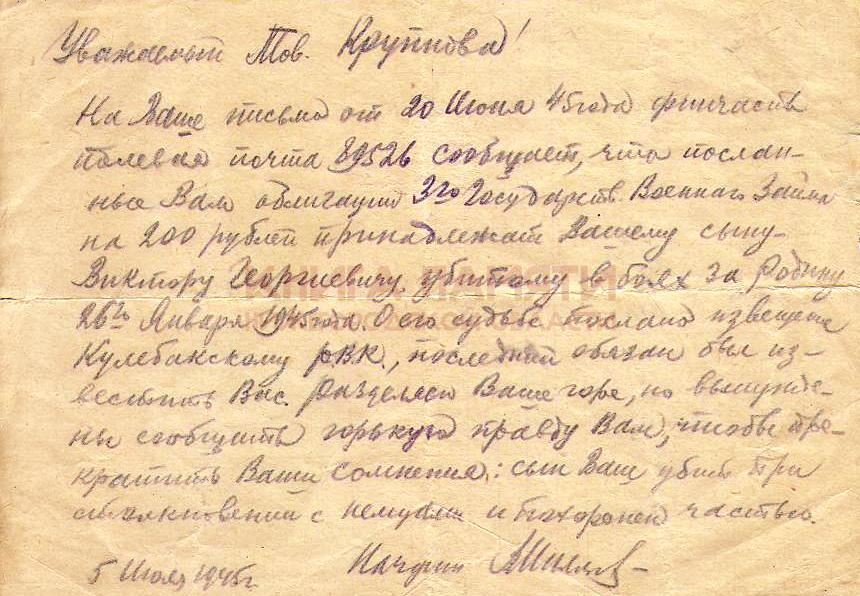 Уважаемый Тов. Крупнова!
На Ваше письмо от 20 Июня 45 года финчасть
полевая почта 89526 сообщает, что послан-
ные Вам облигации 3го Государств. Военного Займа
на 200 рублей принадлежат Вашему сыну
Виктору Георгиевичу, убитому в боях за Родину
26го Января 1945 года. О его судьбе послано извещение
Кулебакскому РВК., последний обязан был из-
вестить Вас. Разделяем Ваше горе, но вынужде-
ны сообщить горькую правду Вам, чтобы пре-
кратить Ваши сомнения: сын Ваш убит при
столкновении с немцами и похоронен частью.
5 Июля 1945г. Начфин